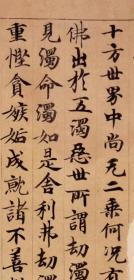 十方世界中尚无二乘何况
佛出於五濁惡世所謂劫濁
見濁命濁如是舍利弗劫濁
重慳貪嫉妬成就諸不善